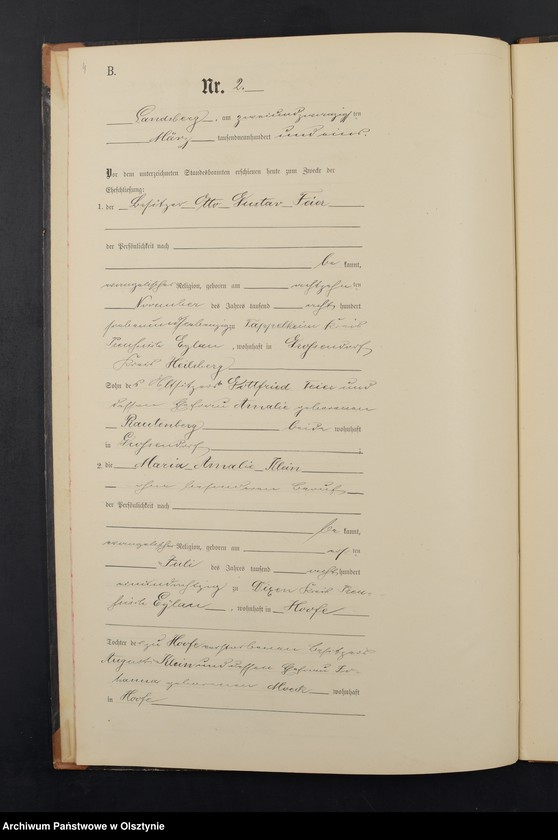 4
B.
Nr. 2.
Landsberg, am zweiundzwanzig ten
März tausendneunhundert und eins.
Vor dem unterzeichneten Standesbeamten erschienen heute zum Zwecke der
Eheschließung:
1. der Besitzer Otto Gustav Feier
der Persönlichkeit nach
be kannt,
evangelischer Religion, geboren am achtzehn ten
November des Jahres tausend acht hundert
siebenundsiebenzig zu Tappelkeim Kreis
Preußisch Eylau, wohnhaft in Großendorf
Kreis Heilsberg
Sohn des Altsitzers Gottfried Feier und
dessen Ehefrau Amalie geborenen
Rautenberg beide wohnhaft
in Großendorf;
2. die Maria Amalie Klein
ohne besonderen Beruf
der Persönlichkeit nach
be kannt,
evangelischer Religion, geboren am ten
Juli des Jahres tausend acht hundert
einundachtzig zu Dixen Kreis Preu-
ßisch Eylau, wohnhaft in Hoofe
Tochter des zu Hoofe verstorbenen Besitzers
August Klein und dessen Ehefrau Jo-
hanna geborenen wohnhaft
in Hoofe
Archiwum Państwowe w Olsztynie